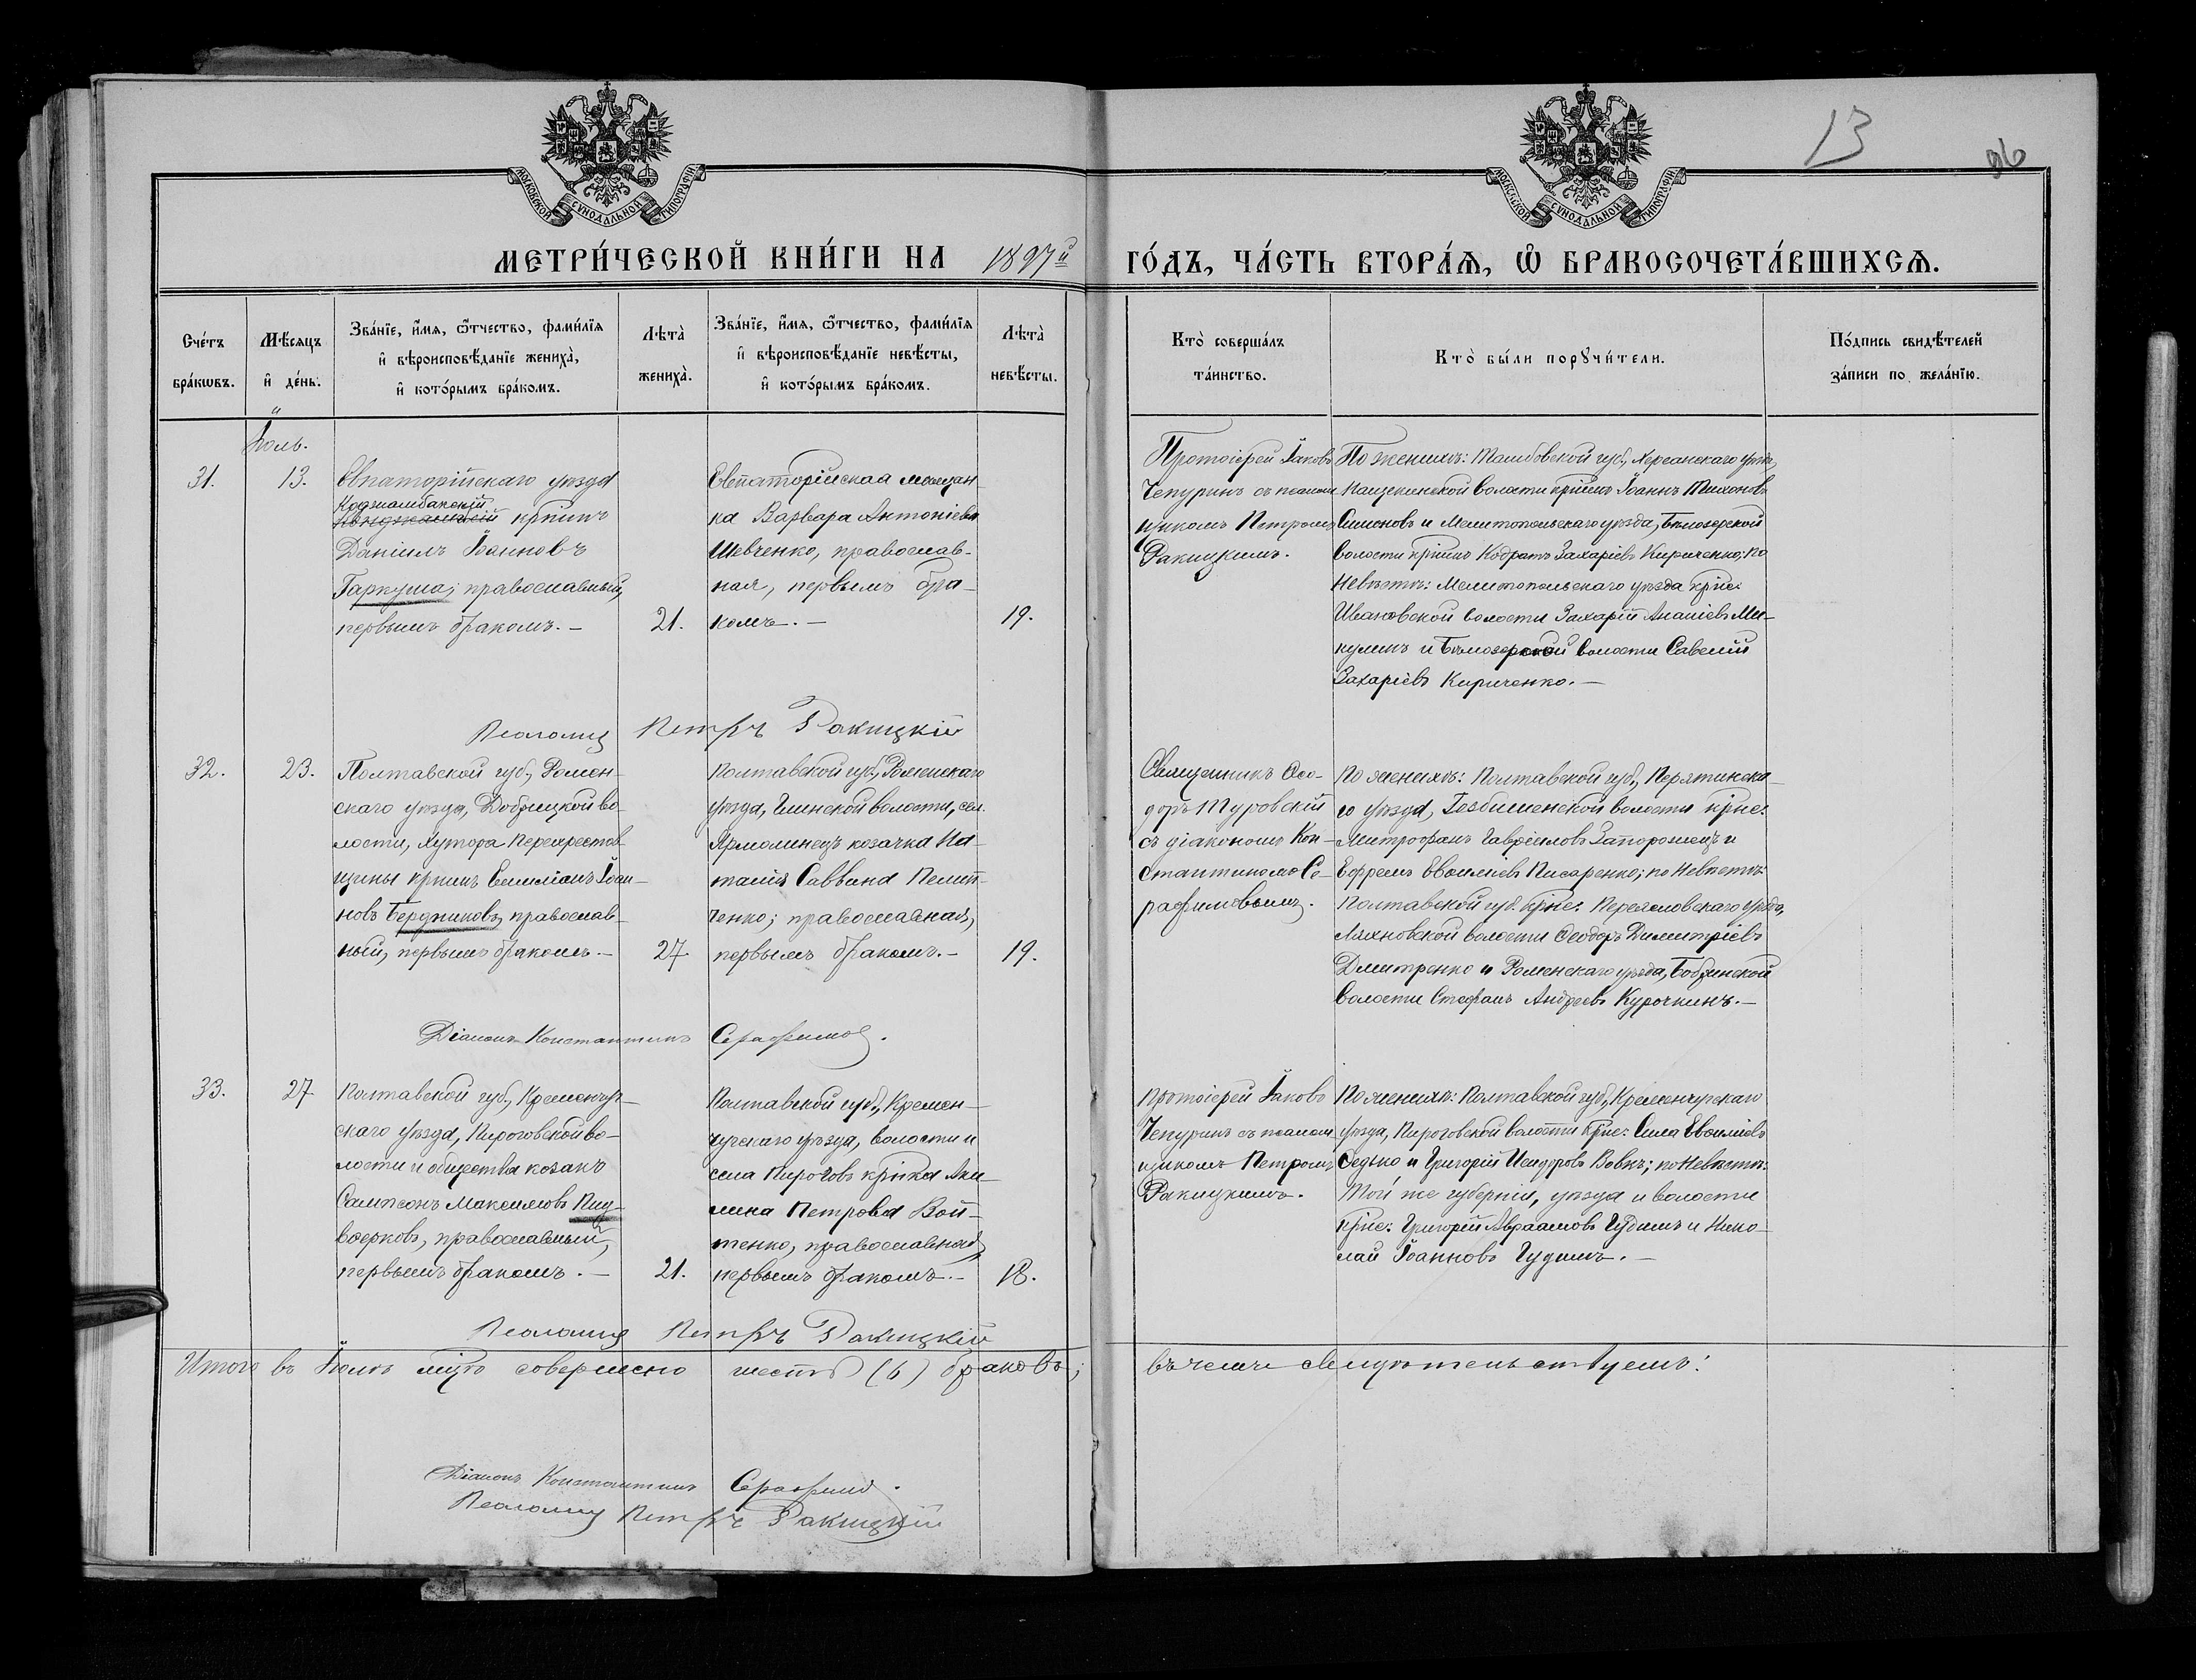 13
96
МОСКОВСКОЙ СѴНОДАЛЬНОЙ ТИПОГРАФІИ
МОСКОВСКОЙ СѴНОДАЛЬНОЙ ТИПОГРАФІИ
МЕТРИ́ЧЕСКОЙ КНИ́ГИ НА 1897й ГО́ДЪ, ЧА́СТЬ ВТОРА́Ѧ, Ѡ БРАКОСОЧЕТА́ВШИХСѦ.
Сче́тъ
бра́кѡвъ.
Мѣ́сяцъ
и де́нь.
Зва́нїе, и́мѧ, ѻ́тчество, фами́лїѧ
и вѣроисповѣ́данїе жениха̀,
и кото́рымъ бра́комъ.
Лѣта̀
жениха̀.
Зва́нїе, и́мѧ, ѻ́тчество, фами́лїѧ
и вѣроисповѣ́данїе невѣ́сты,
и кото́рымъ бра́комъ.
Лѣта̀
невѣ́сты.
Кто̀ соверша́лъ
та́инство.
Кто̀ бы́ли порꙋчи́тели.
По́дпись свидѣ́телей
за́писи по жела́нїю.
Іюль.
31.
13.
Евпаторійскаго уѣзда
Коджамбакскій
крѣнинъ
Даніилъ Іоанновъ
Гаркуша; православный,
первымъ бракомъ.—
21.
Евпаторійская мѣщан-
ка Варвара Антоніева
Шевченко, православ-
ная, первымъ бра-
комъ.—
19.
Протоіерей Іаковъ
Чепуринъ съ псалом
щикомъ Петромъ
Ракицкимъ.
По женихѣ: Тамбовской губ., уѣзда,
волости Іоаннъ Тихоновъ
Симоновъ и Мелитопольскаго уѣзда, Бѣлозерской
волости Кодратъ Захаріевъ Кириченко; по
невѣстѣ: Мелитопольскаго уѣзда крне:
Ивановской волости Захарій Ананіевъ Ми-
кулинъ и Бѣлозерской волости Савелій
Захаріевъ Кириченко.—
Псаломщ Петръ Ракицкій
32.
23.
Полтавской губ., Ромен-
скаго уѣзда, во-
лости, хутора Перекрестов
щины Емиліанъ Іоан-
новъ Бердниковъ, православ-
ный, первымъ бракомъ.—
27
Полтавской губ., Роменскаго
уѣзда, Глинской волости, сел.
Ярмолинецъ козачка На-
талія Саввина
ченко; православная,
первымъ бракомъ.—
19.
Священникъ Ѳео-
доръ Туровскій
съ діакономъ Кон-
стантиномъ Се-
рафимовымъ.
По женихѣ: Полтавской губ., Пирятинска
го уѣзда, волости крне:
Митрофанъ Гавріиловъ Запорожецъ и
Ефремъ Евѳиміевъ Писаренко; по невѣстѣ:
Полтавской губ. крне: Переяславскаго уѣзда,
волости Ѳеодоръ Димитріевъ
Дмитренко и Роменскаго уѣзда, Бобринской
волости Стефанъ Андреевъ Курочкинъ.—
Діаконъ Константинъ Серафимовъ.
33.
27
Полтавской губ., Кременчуг-
скаго уѣзда, Пироговской во-
лости и общества козакъ
Сампсонъ Максимовъ Пид-
православный,
первымъ бракомъ.—
21.
Полтавской губ., Кремен-
чугскаго уѣзда, волости и
села Пироговъ Аки-
лина Петрова Вой-
тенко, православная,
первымъ бракомъ.—
18.
Протоіерей Іаковъ
Чепуринъ съ псалом
щикомъ Петромъ
Ракицкимъ.
По женихѣ: Полтавской губ., Кременчугскаго
уѣзда, Пироговской волости крне: Сила Евѳиміевъ
Седько и Григорій Исидоровъ Вовкъ; по невѣстѣ:
Той же губерніи, уѣзда и волости
крне: Григорій Авраамовъ Гудимъ и Нико-
лай Іоанновъ Гудимъ.—
Псаломщ Петръ Ракицкій
Итого въ Іюлѣ совершено шесть (6) браковъ; въ чемъ свидѣтельствуемъ:
Діаконъ Константинъ Серафимо.
Псаломщ Петръ Ракицкій